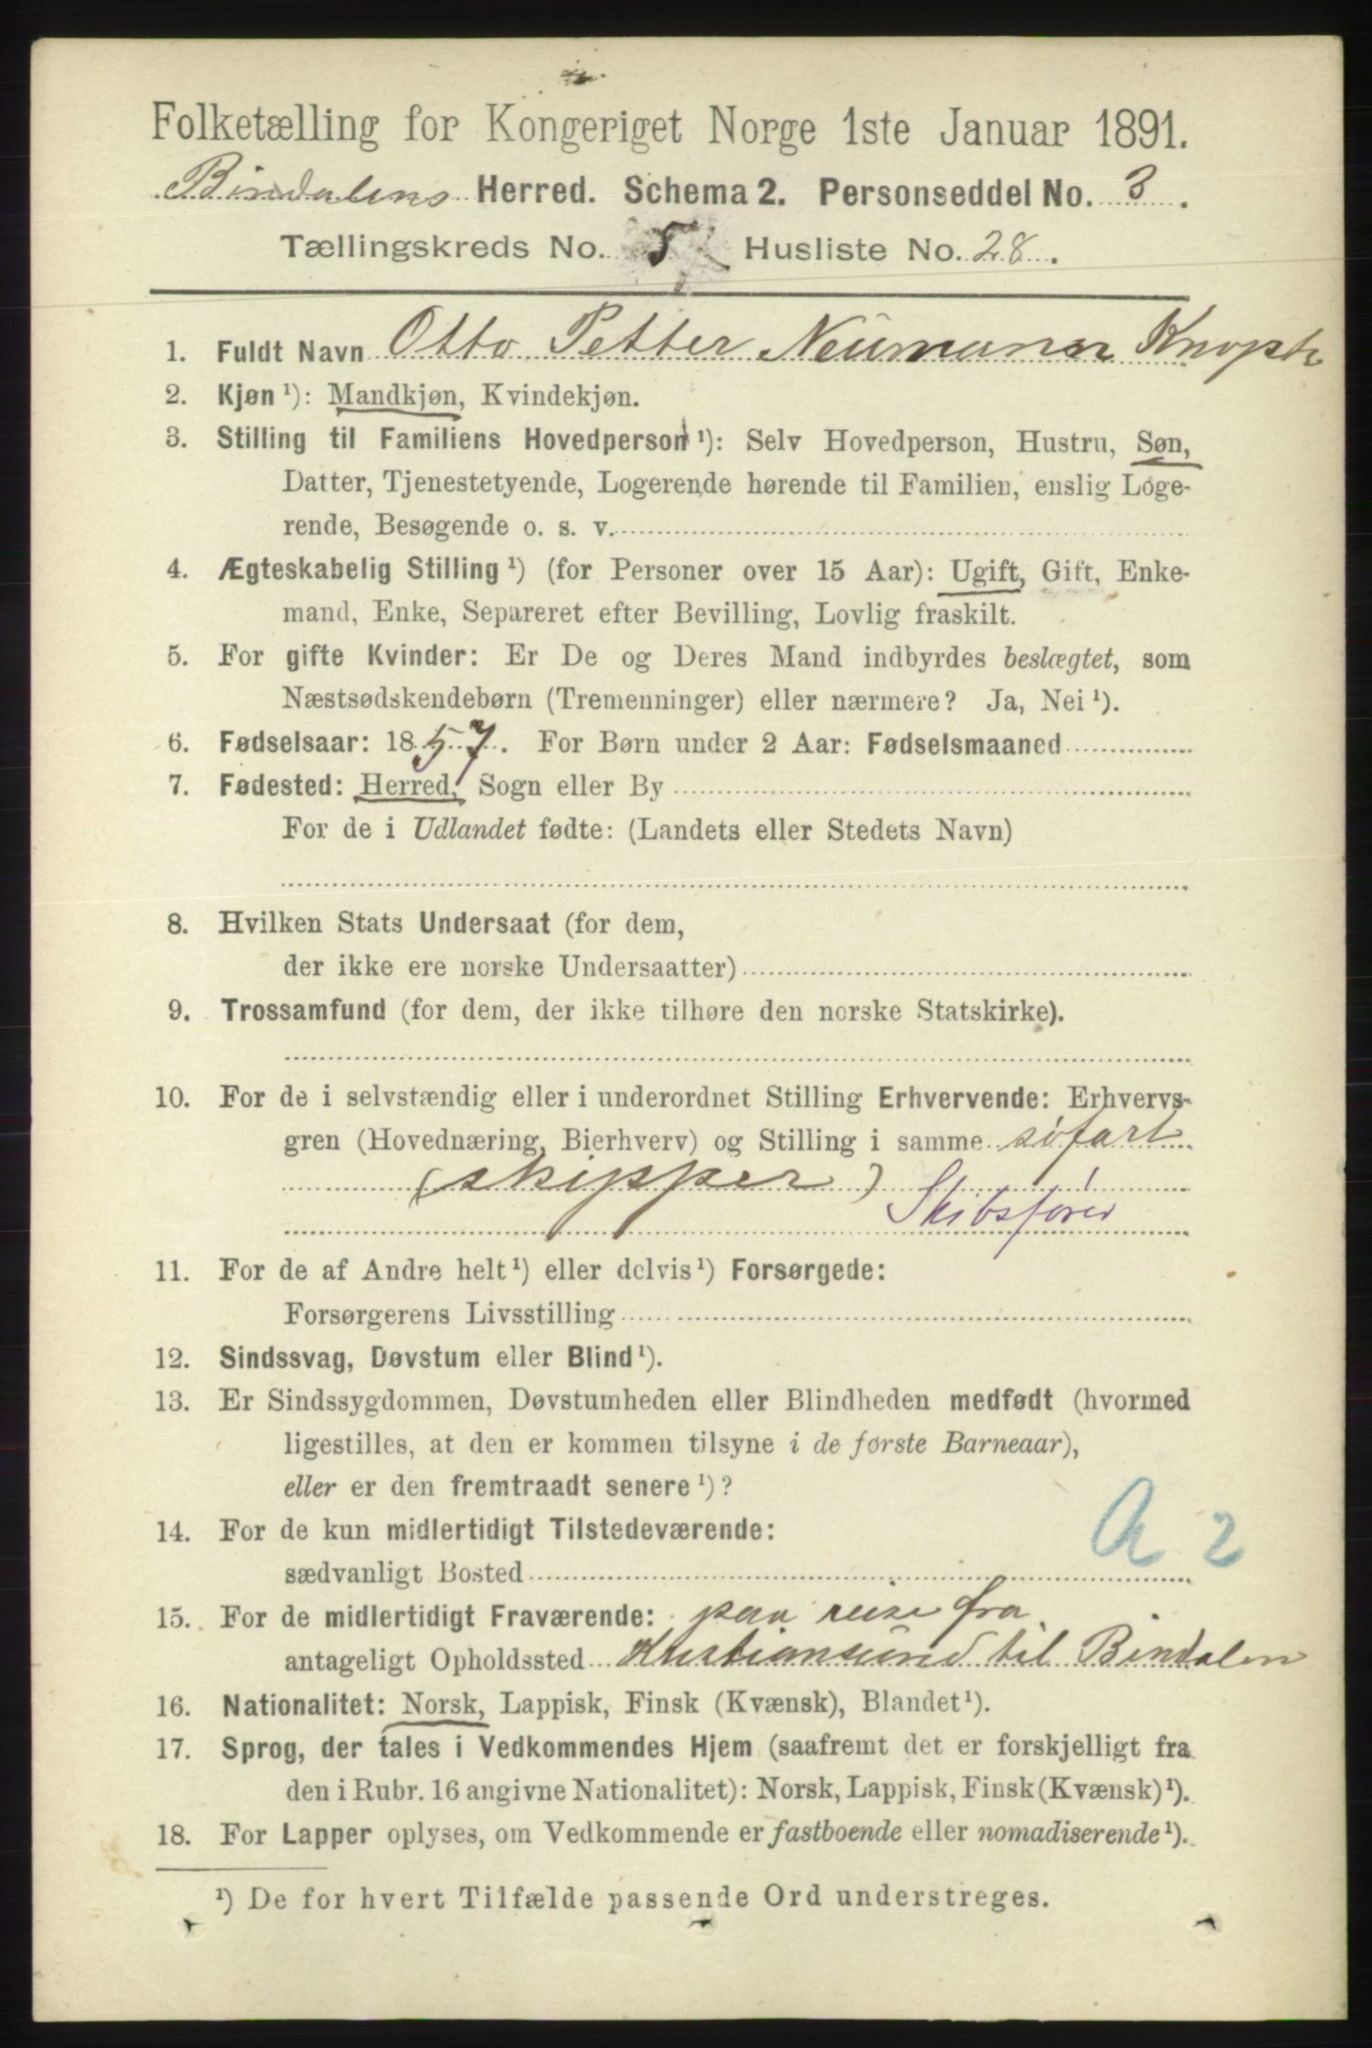 Folketælling for Kongeriget Norge 1ste Januar 1891.
Bindalens Herred. Schema 2. Personseddel No. 3.
Tællingskreds No. 5 Husliste No. 28.
1. Fuldt Navn Otto Petter Neumann Knoph
2. Kjøn ¹): Mandkjøn, Kvindekjøn.
3. Stilling til Familiens Hovedperson ¹): Selv Hovedperson, Hustru, Søn,
Datter, Tjenestetyende, Logerende hørende til Familien, enslig Loge-
rende, Besøgende o. s. v.
4. Ægteskabelig Stilling ¹) (for Personer over 15 Aar): Ugift, Gift, Enke-
mand, Enke, Separeret efter Bevilling, Lovlig fraskilt.
5. For gifte Kvinder: Er De og Deres Mand indbyrdes beslægtet, som
Næstsødskendebørn (Tremenninger) eller nærmere? Ja, Nei ¹).
6. Fødselsaar: 1857. For Børn under 2 Aar: Fødselsmaaned
7. Fødested: Herred, Sogn eller By
For de i Udlandet fødte: (Landets eller Stedets Navn)
8. Hvilken Stats Undersaat (for dem,
der ikke ere norske Undersaatter)
9. Trossamfund (for dem, der ikke tilhøre den norske Statskirke).
10. For de i selvstændig eller i underordnet Stilling Erhvervende: Erhvervs-
gren (Hovednæring, Bierhverv) og Stilling i samme søfart
(skipper)
Skibsfører
11. For de af Andre helt ¹) eller delvis ¹) Forsørgede:
Forsørgerens Livsstilling
12. Sindssvag, Døvstum eller Blind ¹).
13. Er Sindssygdommen, Døvstumheden eller Blindheden medfødt (hvormed
ligestilles, at den er kommen tilsyne i de første Barneaar),
eller er den fremtraadt senere ¹)?
A 2
14. For de kun midlertidigt Tilstedeværende:
sædvanligt Bosted
15. For de midlertidigt Fraværende: paa reise fra
antageligt Opholdssted Kristiansund til Bindalen
16. Nationalitet: Norsk, Lappisk, Finsk (Kvænsk), Blandet ¹).
17. Sprog, der tales i Vedkommendes Hjem (saafremt det er forskjelligt fra
den i Rubr. 16 angivne Nationalitet): Norsk, Lappisk, Finsk (Kvænsk) ¹).
18. For Lapper oplyses, om Vedkommende er fastboende eller nomadiserende ¹).
¹) De for hvert Tilfælde passende Ord understreges.